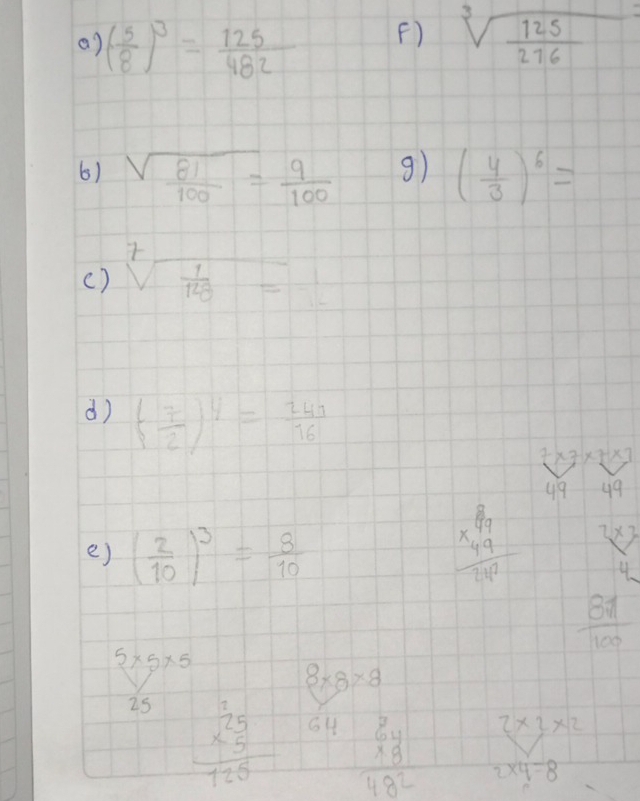 a) (5/8)^3 = 125/482
f) ∛(125/216)
b) √(81/100) = 9/100
g) (4/3)^6 =
c) ⁷√(1/128) =
d) (7/2)^4 = 241/16
7×7×7×7
49 49
e) (2/10)^3 = 8/10
8
49
×49
2×2
4
81/100
5×5×5
25
2
25
×5
125
8×8×8
64
64
×8
482
2×2×2
2×4=8